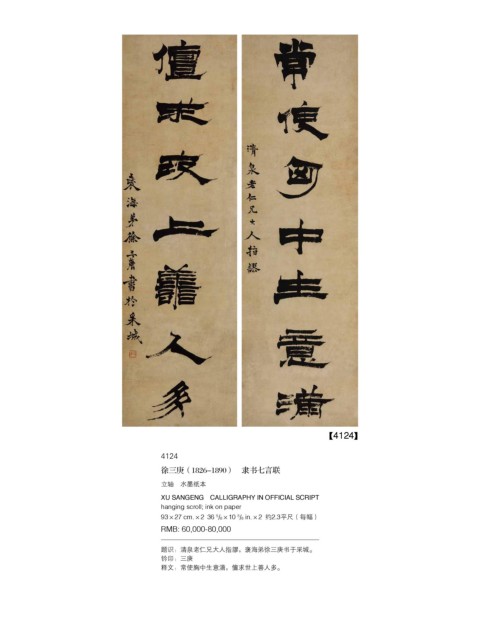 常使匈中生意滿
清泉老仁兄大人指謬
求 上譱人多
海弟徐三庚書於采城
【4124】
4124
徐三庚(1826-1890) 隶书七言联
立轴 水墨纸本
XU SANGENG CALLIGRAPHY IN OFFICIAL SCRIPT
hanging scroll; ink on paper
93×27 cm.×2 36 5/8×10 5/8 in.×2 约2.3平尺(每幅)
RMB: 60,000-80,000
题识:清泉老仁兄大人指謬,海弟徐三庚书于采城。
钤印:三庚
释文:常使胸中生意满,求世上善人多。